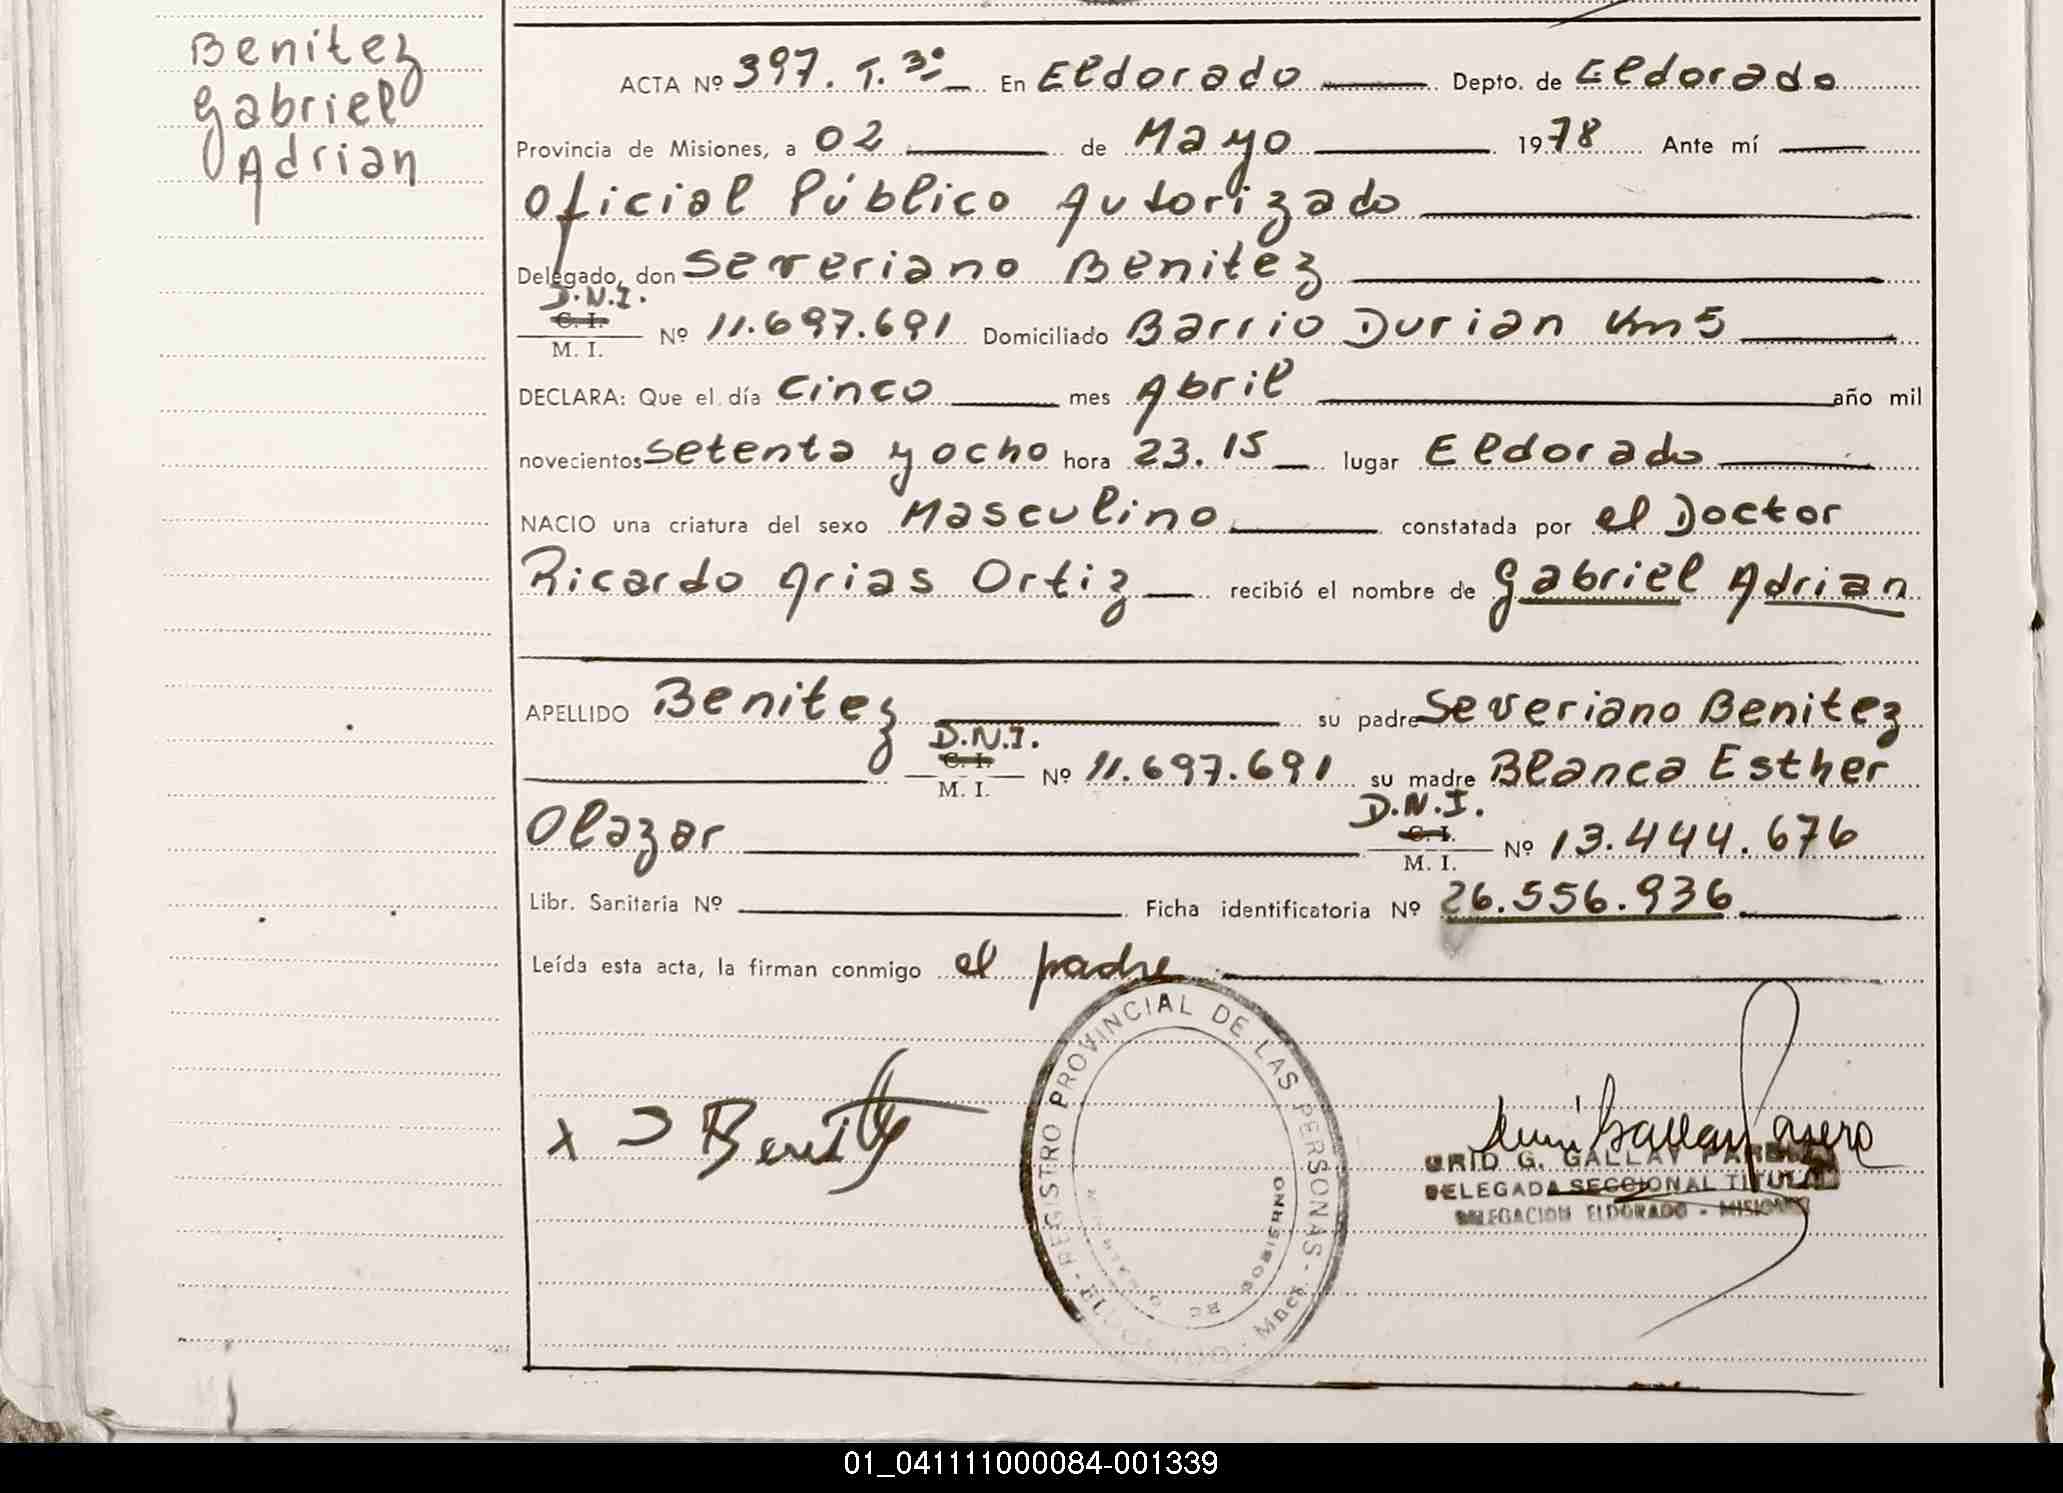 Benitez
Gabriel
Adrian
ACTA Nº 397. T. 3º En Eldorado Depto. de Eldorado
Provincia de Misiones, a 02 de Mayo 1978 Ante mí
Oficial Público Autorizado
Delegado, don Severiano Benitez
D.N.I.
C. I.
M. I. Nº 11.697.691 Domiciliado Barrio Durian Km 5
DECLARA: Que el día cinco mes Abril año mil
novecientos setenta y ocho hora 23.15 lugar Eldorado
NACIO una criatura del sexo Masculino constatada por el Doctor
Ricardo Arias Ortiz recibió el nombre de Gabriel Adrian
APELLIDO Benitez su padre Severiano Benitez
D.N.I.
C. I.
M. I. Nº 11.697.691 su madre Blanca Esther
Olazar
D.N.I.
C. I.
M. I. Nº 13.444.676
Libr. Sanitaria Nº Ficha identificatoria Nº 26.556.936
Leída esta acta, la firman conmigo el padre
REGISTRO PROVINCIAL DE LAS PERSONAS
GOBIERNO
x Benitez
G. GALLAY
DELEGADA SECCIONAL TITULAR
DELEGACION ELDORADO - MISIONES
01_041111000084-001339